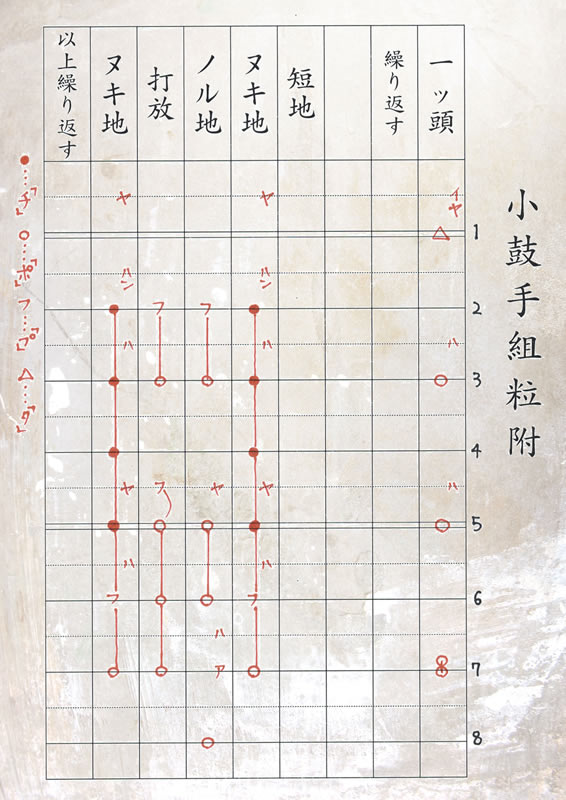 小鼓手組粒附
1
2
3
4
5
6
7
8
一ッ頭
イヤ
△
ハ
○
ハ
○
繰り返す
短地
ヌキ地
ヤ
ハン
●
ハ
●
●
ヤ
●
ハ
フ
○
ノル地
フ
○
ヤ
○
○
ハ
ア
○
打放
フ
○
フ
○
○
○
ヌキ地
ヤ
ハン
●
ハ
●
●
ヤ
●
ハ
フ
○
以上繰り返す
●…「チ」 ○…「ポ」 フ…「プ」 △…「タ」